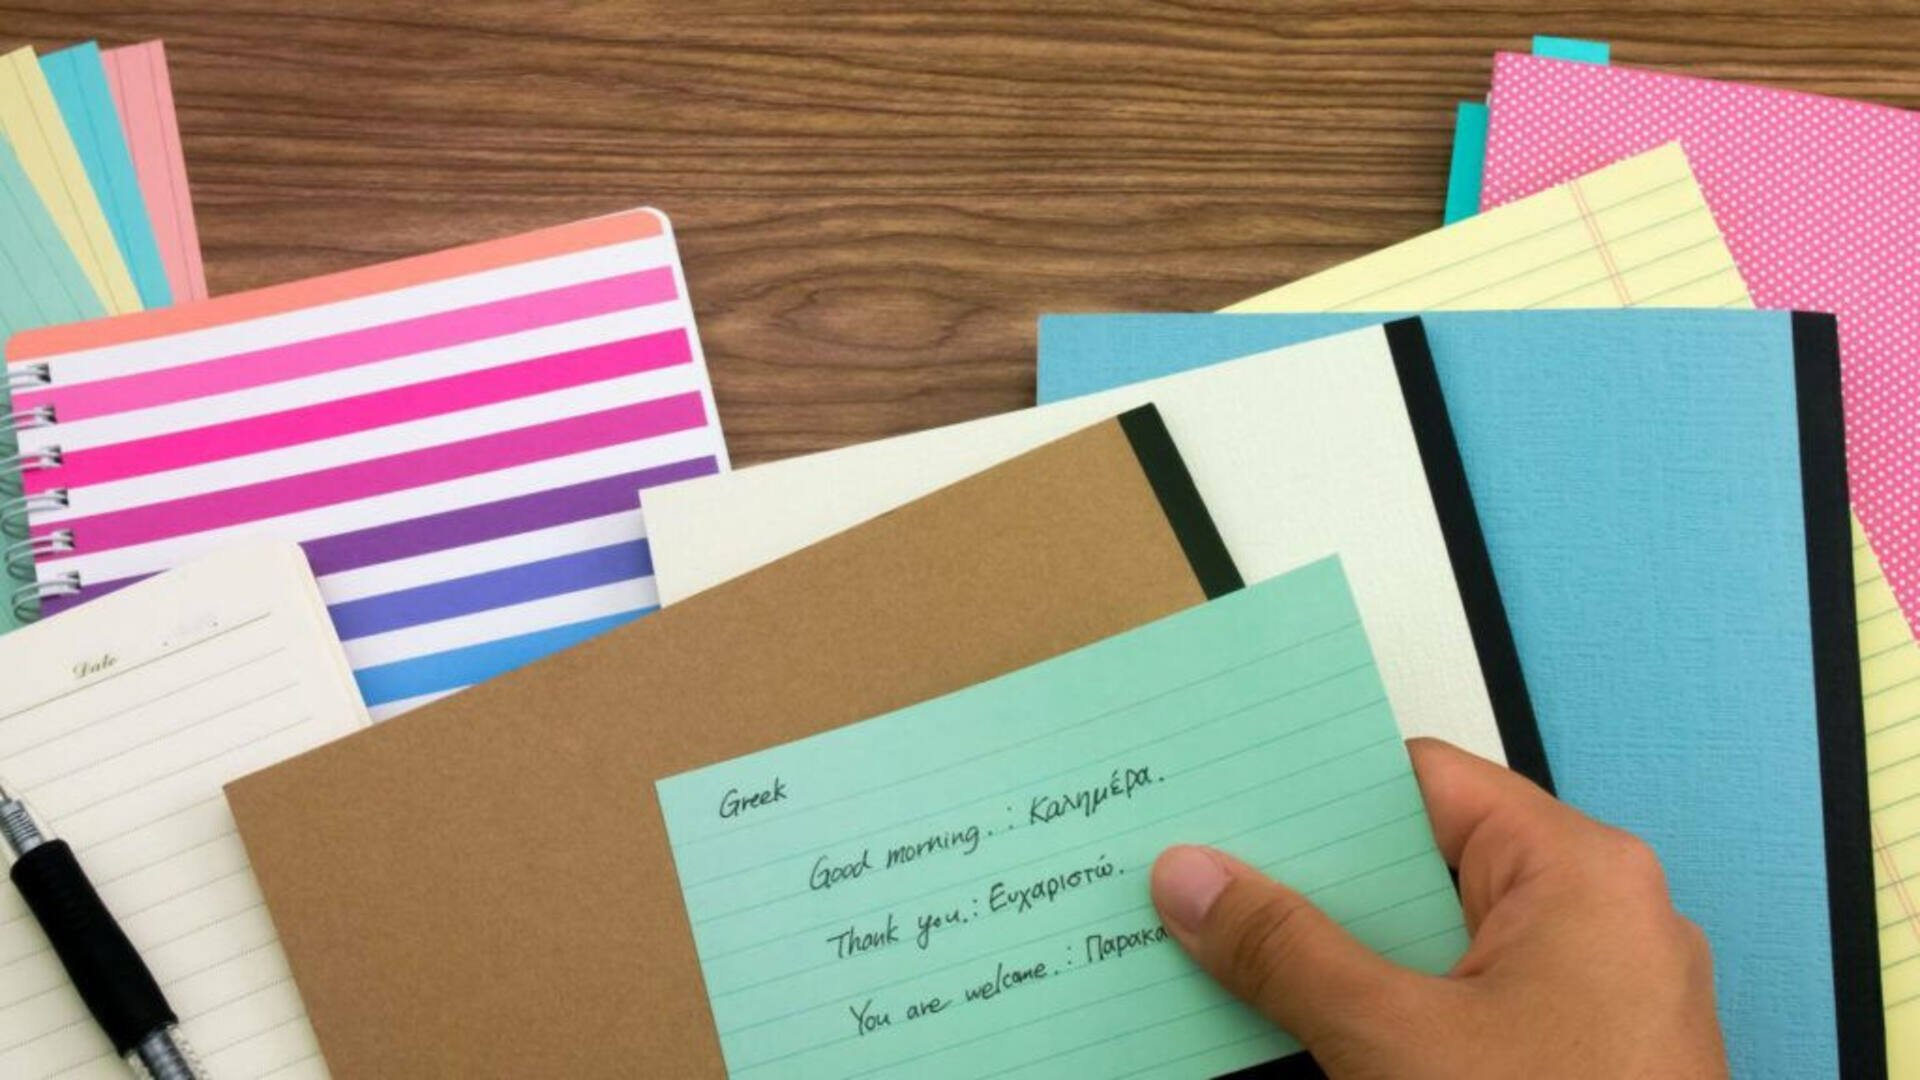 Date
Greek
Good morning. : Καλημέρα.
Thank you. : Ευχαριστώ.
You are welcome. : Παρακα